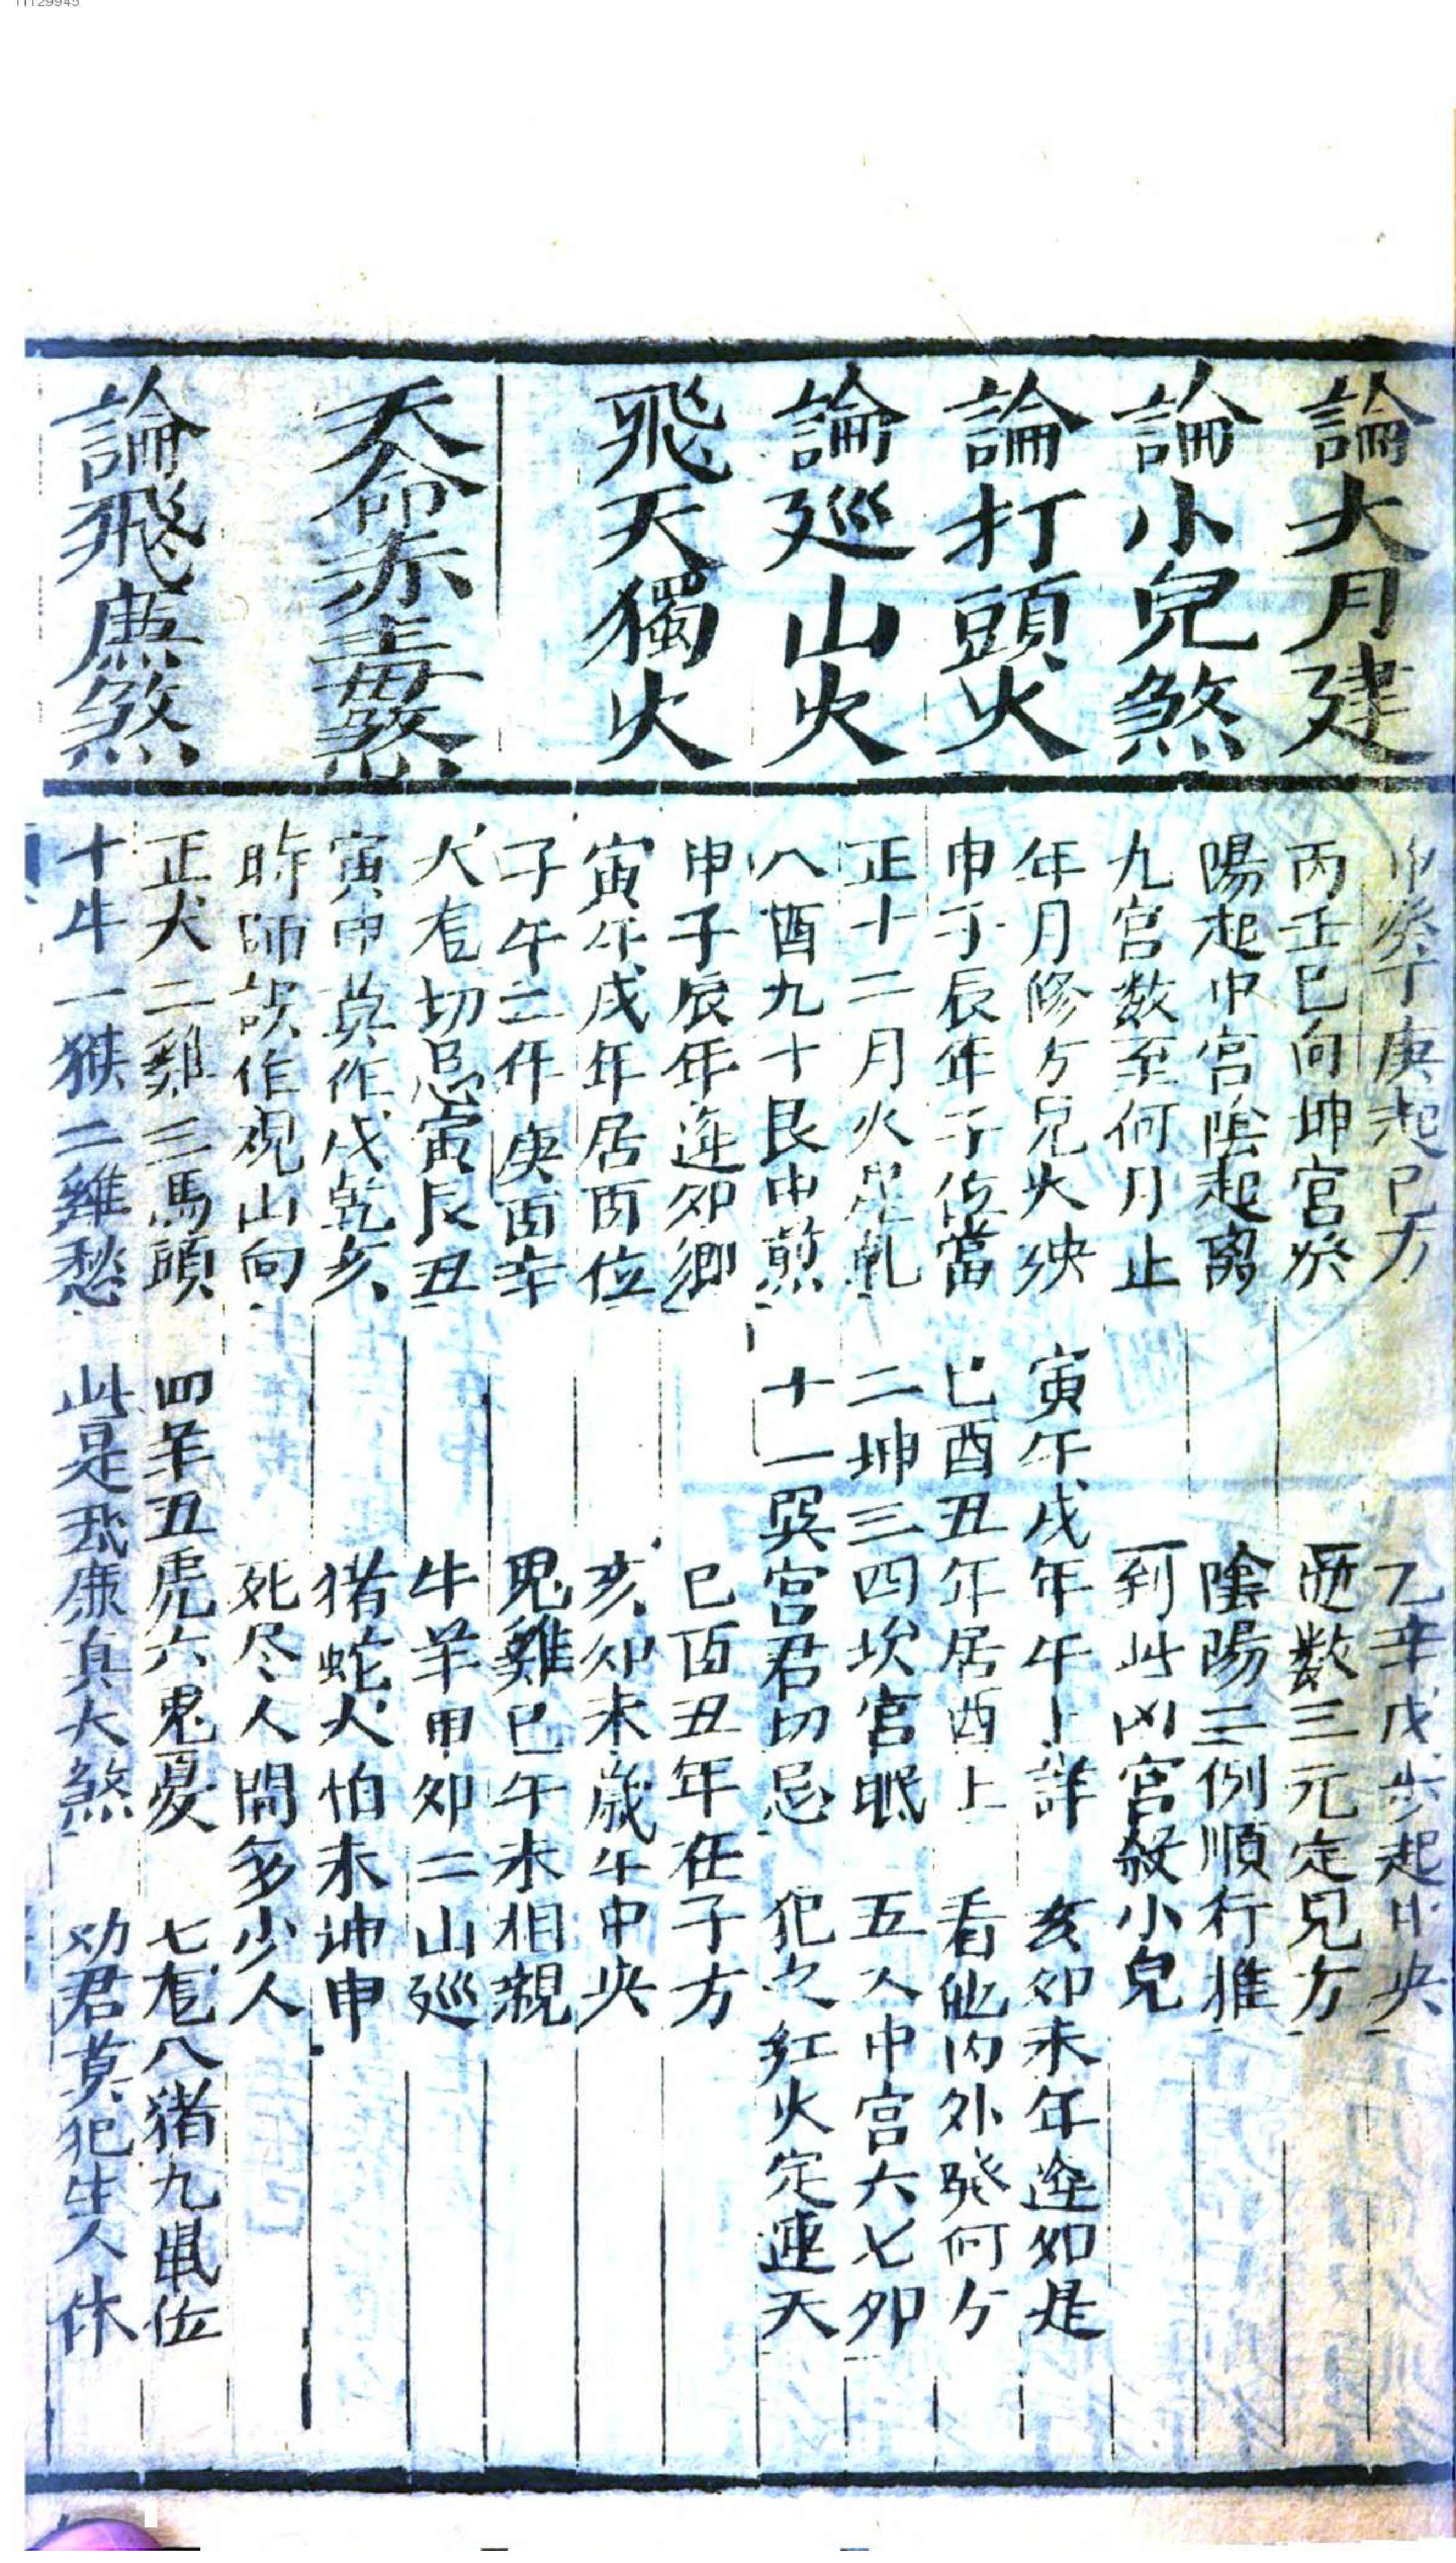 11129945
論大月建
論小兒煞
論打頭火
論廵山火
飛天獨火
天命赤毒煞
論飛廉煞
甲癸丁庚起巳方 乙辛戊步起中央
丙壬巳向坤宮发 逓数三元定兄方
陽起中宮陰起离 陰陽二例順行推
九宮数至何月止 到此凶宮煞小兒
年月修方兄火殃 寅午戌年午上詳 亥卯未年逆如是
申子辰年子位當 巳酉丑年居酉上 看他内外発何方
正十二月火星乹 二坤三四坎宮眠 五入中宮六七卯
八酉九十艮中煎 十一巽宮君切忌 犯之紅火定連天
申子辰年逆卯鄉 巳酉丑年在子方
寅午戌年居酉位 亥卯未歳午中央
子午二件庚酉辛 鬼雞巳午未相親
犬尨切忌寅艮丑 牛羊甲卯二山廵
寅甲莫作戌乾亥 猪蛇犬怕未坤申
時師誤作覌山向 死尽人間多少人
正犬二鷄三馬頭 四羊五虎六鬼憂 七尨八猪九鼠位
十牛一猴二雞愁 此是飛廉真大煞 劝君莫犯生人休